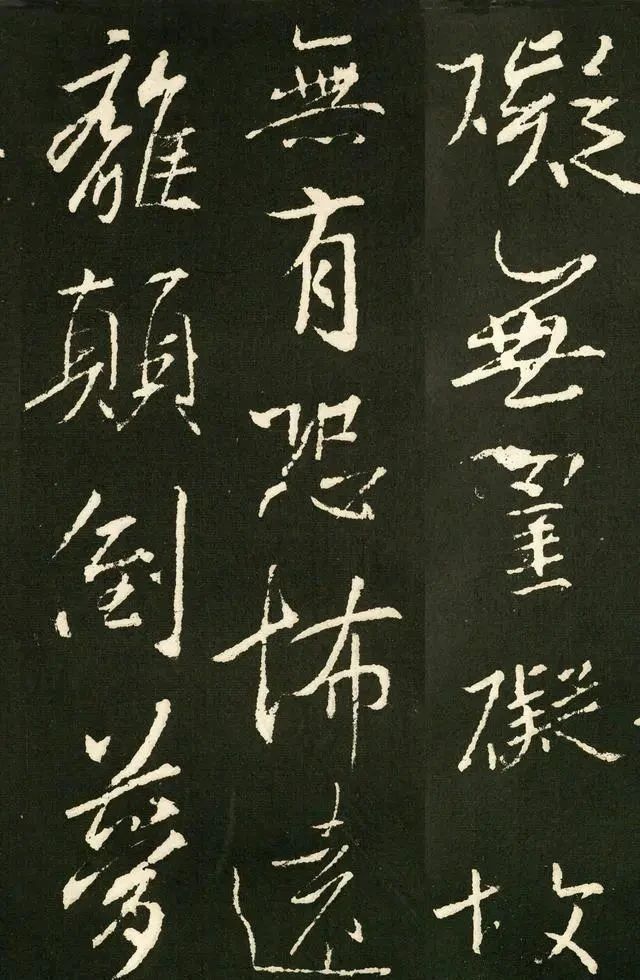 礙無罣礙故
無有恐怖遠
離顛倒夢